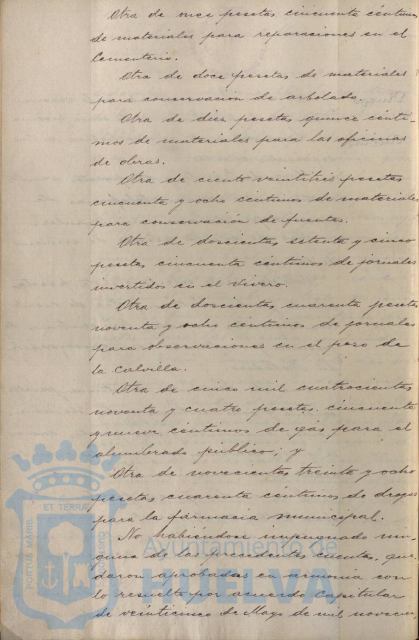 Otra de once pesetas cincuenta céntimos
de materiales para reparaciones en el
Cementerio.
Otra de doce pesetas de materiales
para conservación de arbolado.
Otra de diez pesetas quince cénti-
mos de materiales para las oficinas
de obras.
Otra de ciento veintitrés pesetas
cincuenta y ocho céntimos de materiales
para conservación de fuentes.
Otra de doscientas setenta y cinco
pesetas cincuenta céntimos de jornales
invertidos en el Vivero.
Otra de doscientas cuarenta pesetas
noventa y ocho céntimos de jornales
para observaciones en el pozo de
la Calvilla.
Otra de cinco mil cuatrocientas
noventa y cuatro pesetas cincuenta
y nueve céntimos de gas para el
alumbrado público; y
Otra de novecientas treinta y ocho
pesetas cuarenta céntimos de drogas
para la farmacia municipal.
No habiéndose impugnado nin-
guna de las precedentes cuentas, que-
daron aprobadas en armonía con
lo resuelto por acuerdo Capitular
de veinticinco de Mayo de mil novecien
PORTUS MARIS ET TERRAE CUSTODIA
Ayuntamiento de
HUELVA